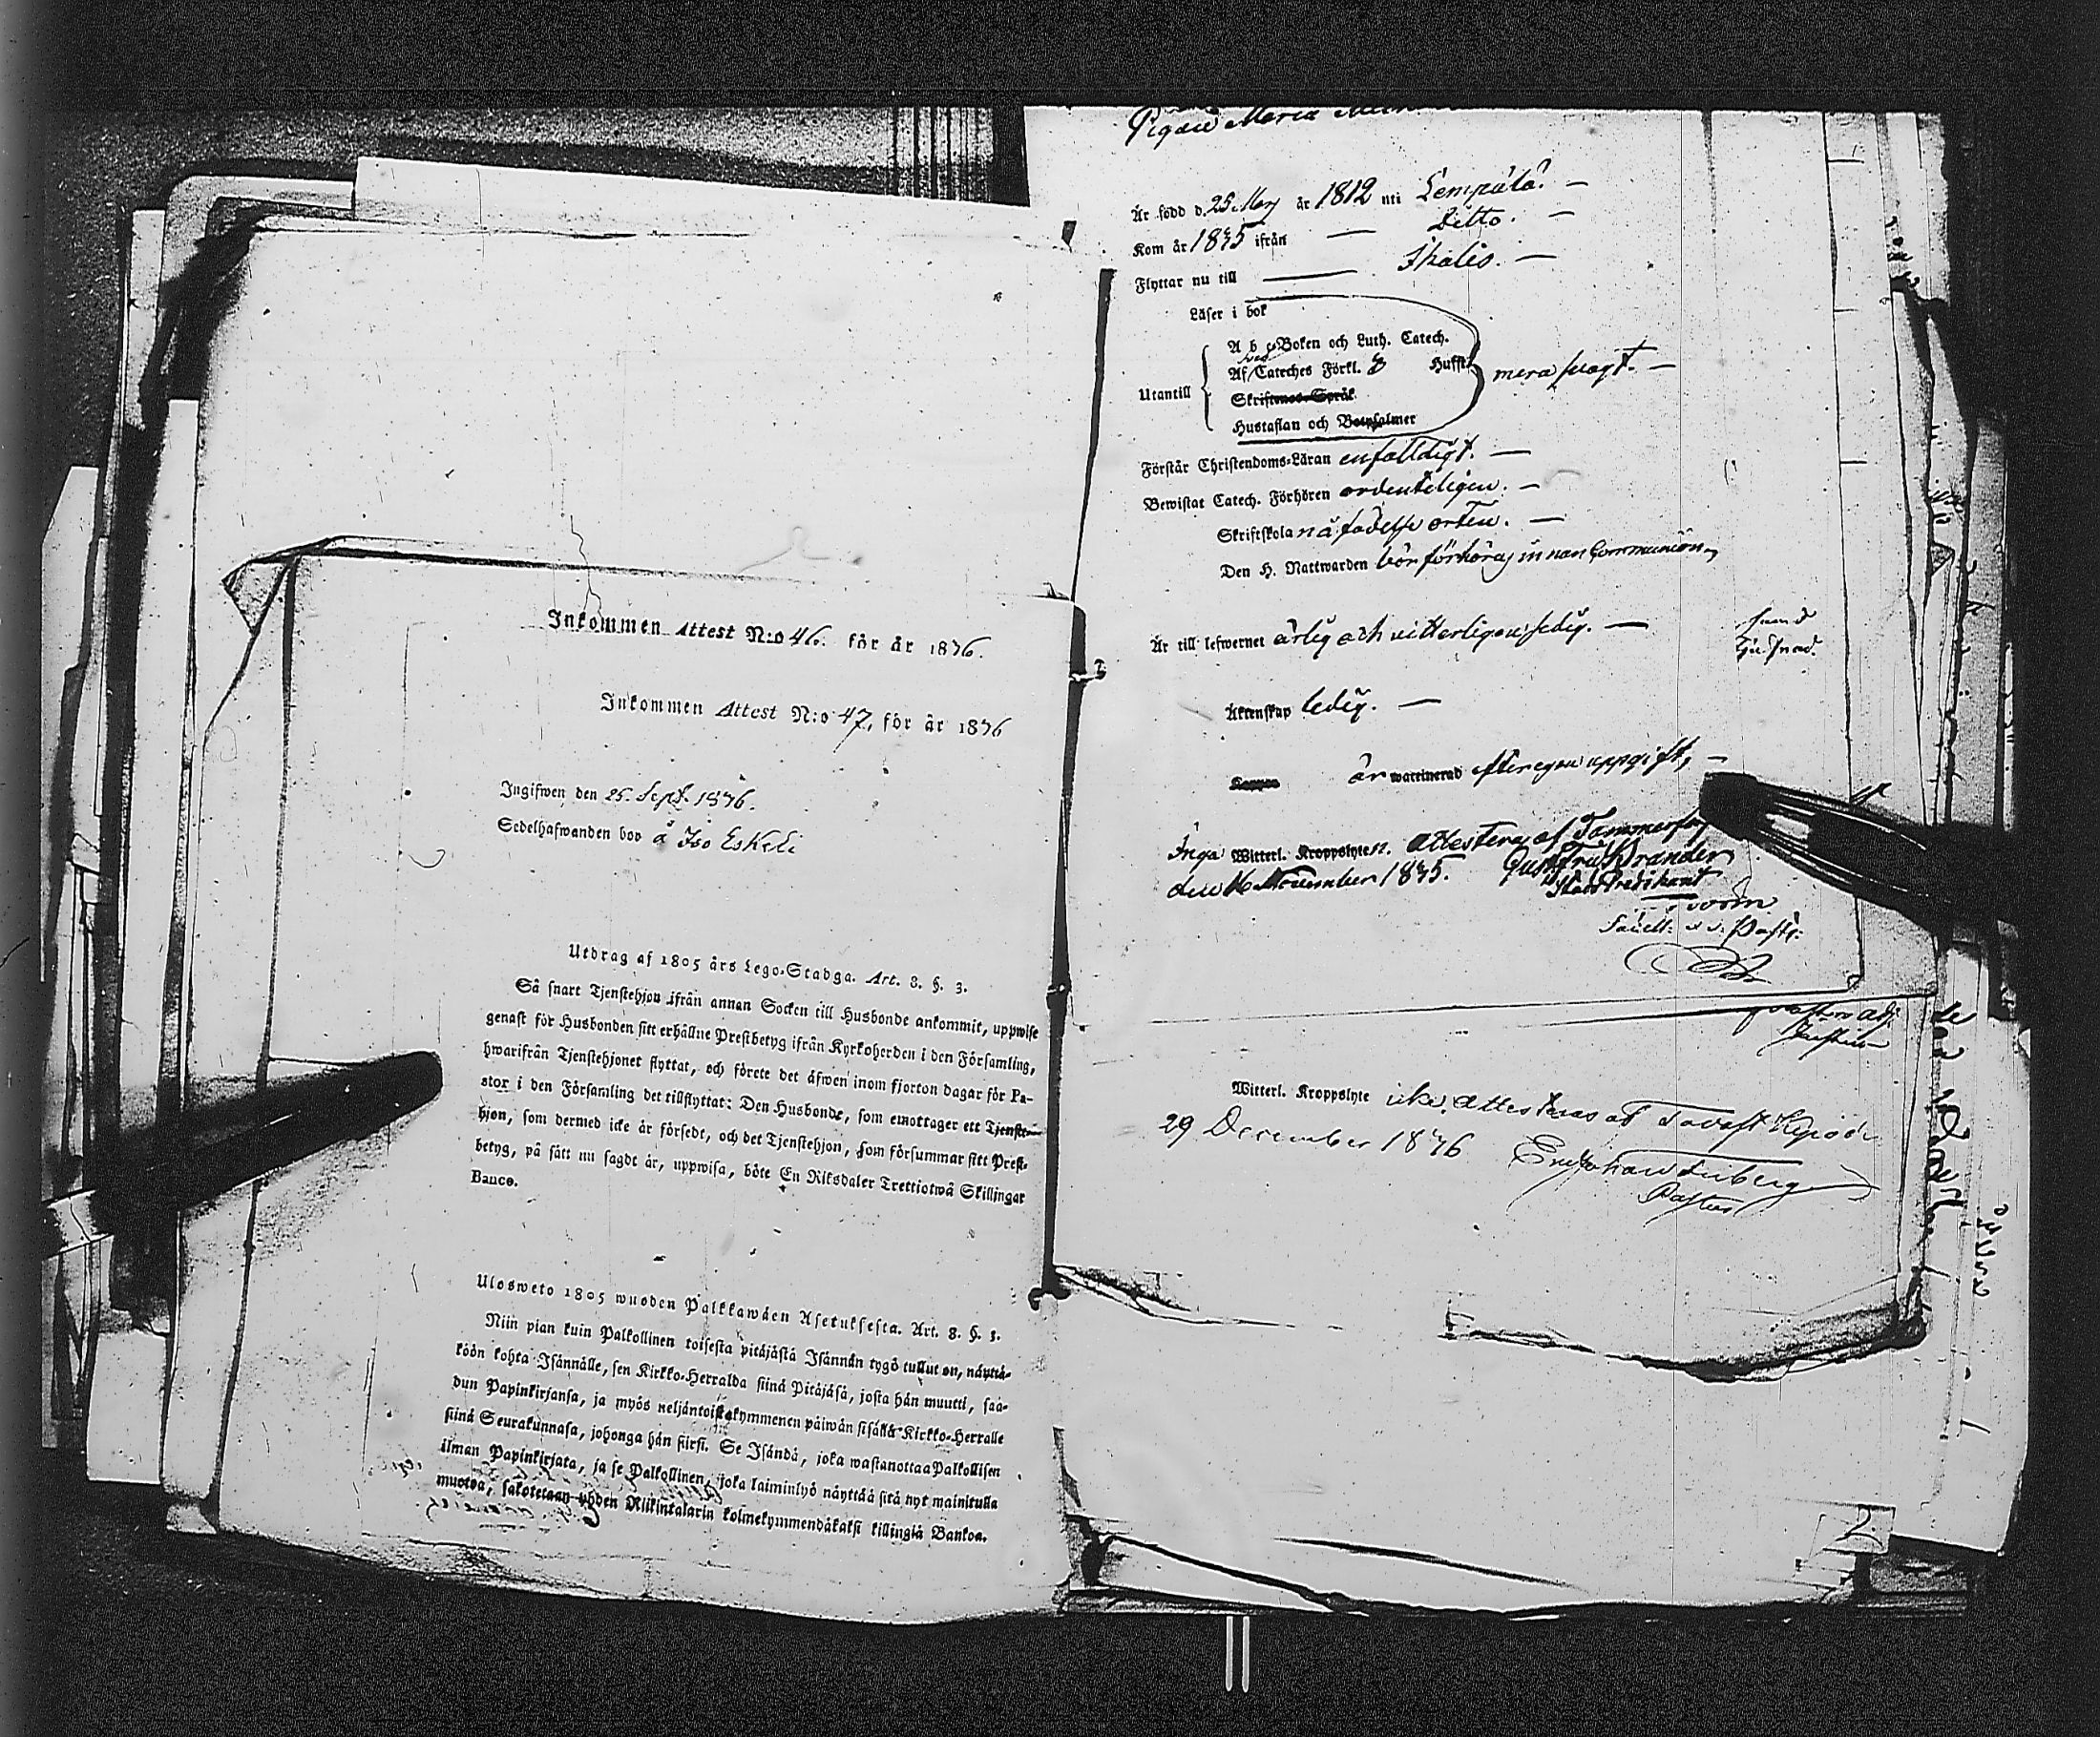 Inkommen Attest N:o 46. för år 1836.
Inkommen Attest N:o 47, för år 1836
Ingifwen den 25. Sept. 1836.
Sedelhafwanden boo å Iso Eskeli
Utdrag af 1805 års Lego-Stadga. Art. 8. §. 3.
Så snart Tjenstehjon ifrån annan Socken till Husbonde ankommit, uppwise
genast för Husbonden sitt erhållne Prestbetyg ifrån Kyrkoherden i den Församling,
hwarifrån Tjenstehjonet flyttat, och förete det äfwen inom fjorton dagar för Pa-
stor i den Församling det tillflyttat: Den Husbonde, som emottager ett Tjenste-
hjon, som dermed icke är försedt, och det Tjenstehjon, som försummar sitt Prest-
betyg, på sätt nu sagdt är, uppwisa, böte En Riksdaler Trettiotwå Skillingar
Banco.
Ulosweto 1805 wuoden Palkkawäen Asetuksesta. Art. 8. §. 3.
Niin pian kuin Palkollinen toisesta pitäjästä Isännän tygö tullut on, näyttä-
köön kohta Isännälle, sen Kirkko-Herralda siinä Pitäjäsä, josta hän muutti, saa-
dun Papinkirjansa, ja myös neljäntoistakymmenen päiwän sisällä Kirkko-Herralle
siinä Seurakunnasa, johonga hän siirsi. Se Isändä, joka wastanottaa Palkollisen
ilman Papinkirjata, ja se Palkollinen, joka laiminlyö näyttää sitä nyt mainitulla
muotoa, sakotetaan yhden Riikintalarin kolmekymmendäkaksi killingiä Bankoa.
Pigan Maria
Är född d. 25 Maij år 1812 uti Lempälä. —
Kom år 1835 ifrån — Ditto. —
Flyttar nu till — Ikalis. —
Läser i bok
A b c Boken och Luth. Catech.
Af Cateches Förkl. Hufst.
Utantill mera svagt. —
Skriftenes Språk
Hustaflan och Botpsalmer
Förstår Christendoms-Läran enfaldigt. —
Bewistat Catech. Förhören ordenteligen. —
Skriftskola på födelse orten. —
Den H. Nattwarden bör förhöras innan Communion
Är till lefwernet ärlig och vitterligen sedig. —
Äktenskap ledig. —
Koppor är waccinerad efter egen uppgift, —
Inga Witterl. Kroppslyten. Attesteras af Tammerfors
den 16 November 1835.
Stads Predikant
Witterl. Kroppslyte icke, attesteras af Tavastkyro
29 December 1836
Pastor